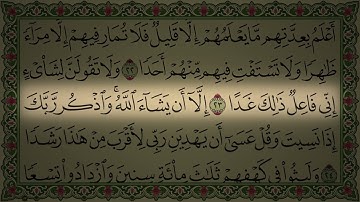 أَعْلَمُ بِعِدَّتِهِم مَّا يَعْلَمُهُمْ إِلَّا قَلِيلٌ فَلَا تُمَارِ فِيهِمْ إِلَّا مِرَآءً
ظَٰهِرًا وَلَا تَسْتَفْتِ فِيهِم مِّنْهُمْ أَحَدًا ٢٢ وَلَا تَقُولَنَّ لِشَا۟ىْءٍ
إِنِّى فَاعِلٌ ذَٰلِكَ غَدًا ٢٣ إِلَّآ أَن يَشَآءَ ٱللَّهُ ۚ وَٱذْكُر رَّبَّكَ
إِذَا نَسِيتَ وَقُلْ عَسَىٰٓ أَن يَهْدِيَنِ رَبِّى لِأَقْرَبَ مِنْ هَٰذَا رَشَدًا ٢٤
وَلَبِثُوا۟ فِى كَهْفِهِمْ ثَلَٰثَ مِا۟ئَةٍ سِنِينَ وَٱزْدَادُوا۟ تِسْعًا